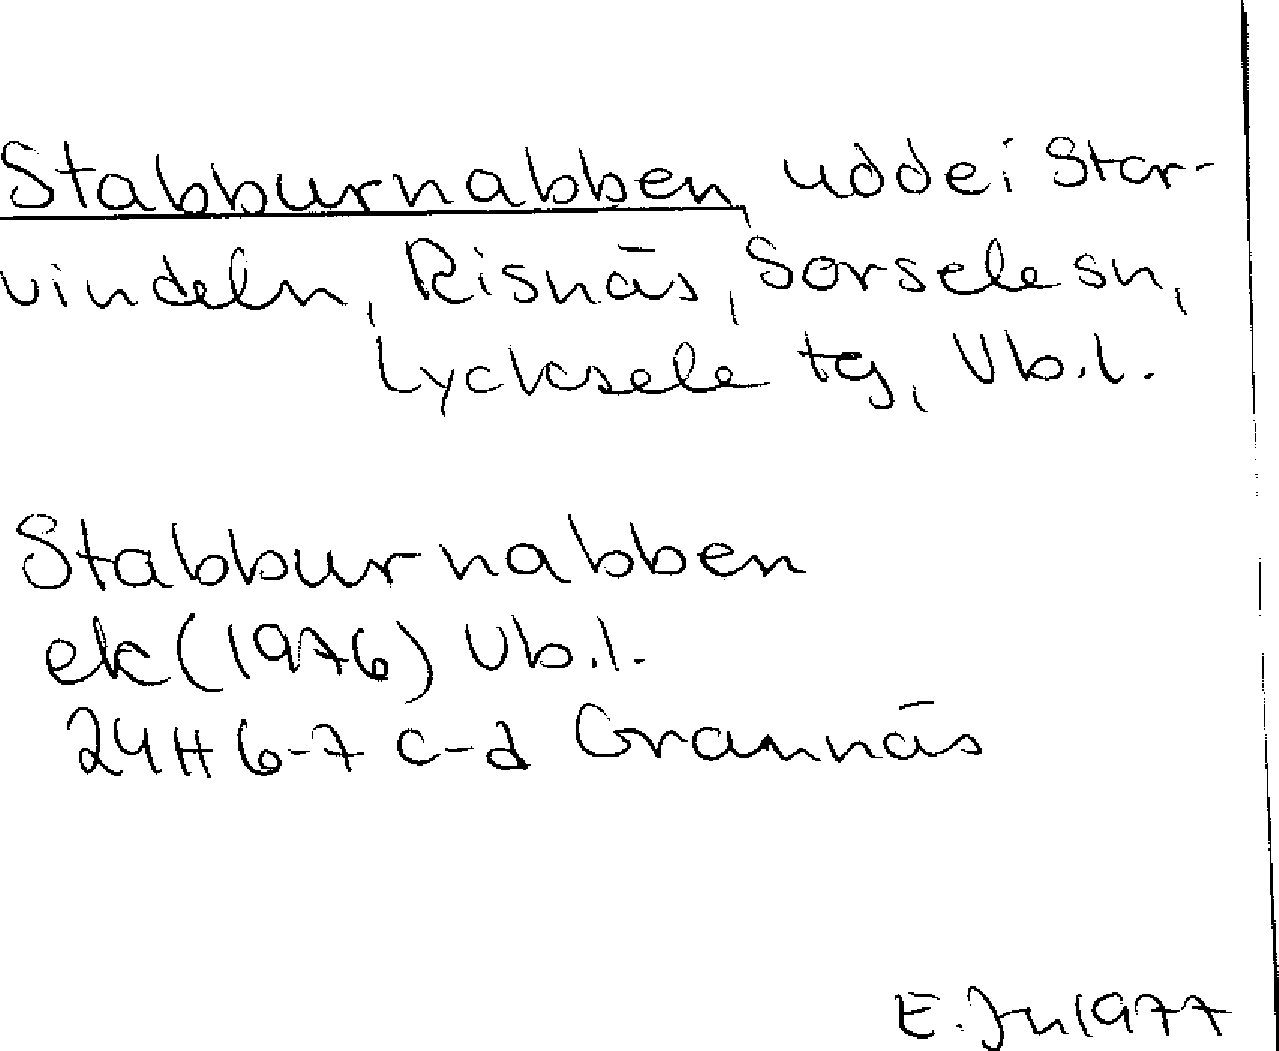 Stabburnabben, udde i Stor-
vindeln, Risnäs, Sorsele sn,
Lycksele tg, Vb.l.
Stabburnabben
ek (1976) Vb.l.
24H 6-7 c-d Grannäs
E. Jn 1977